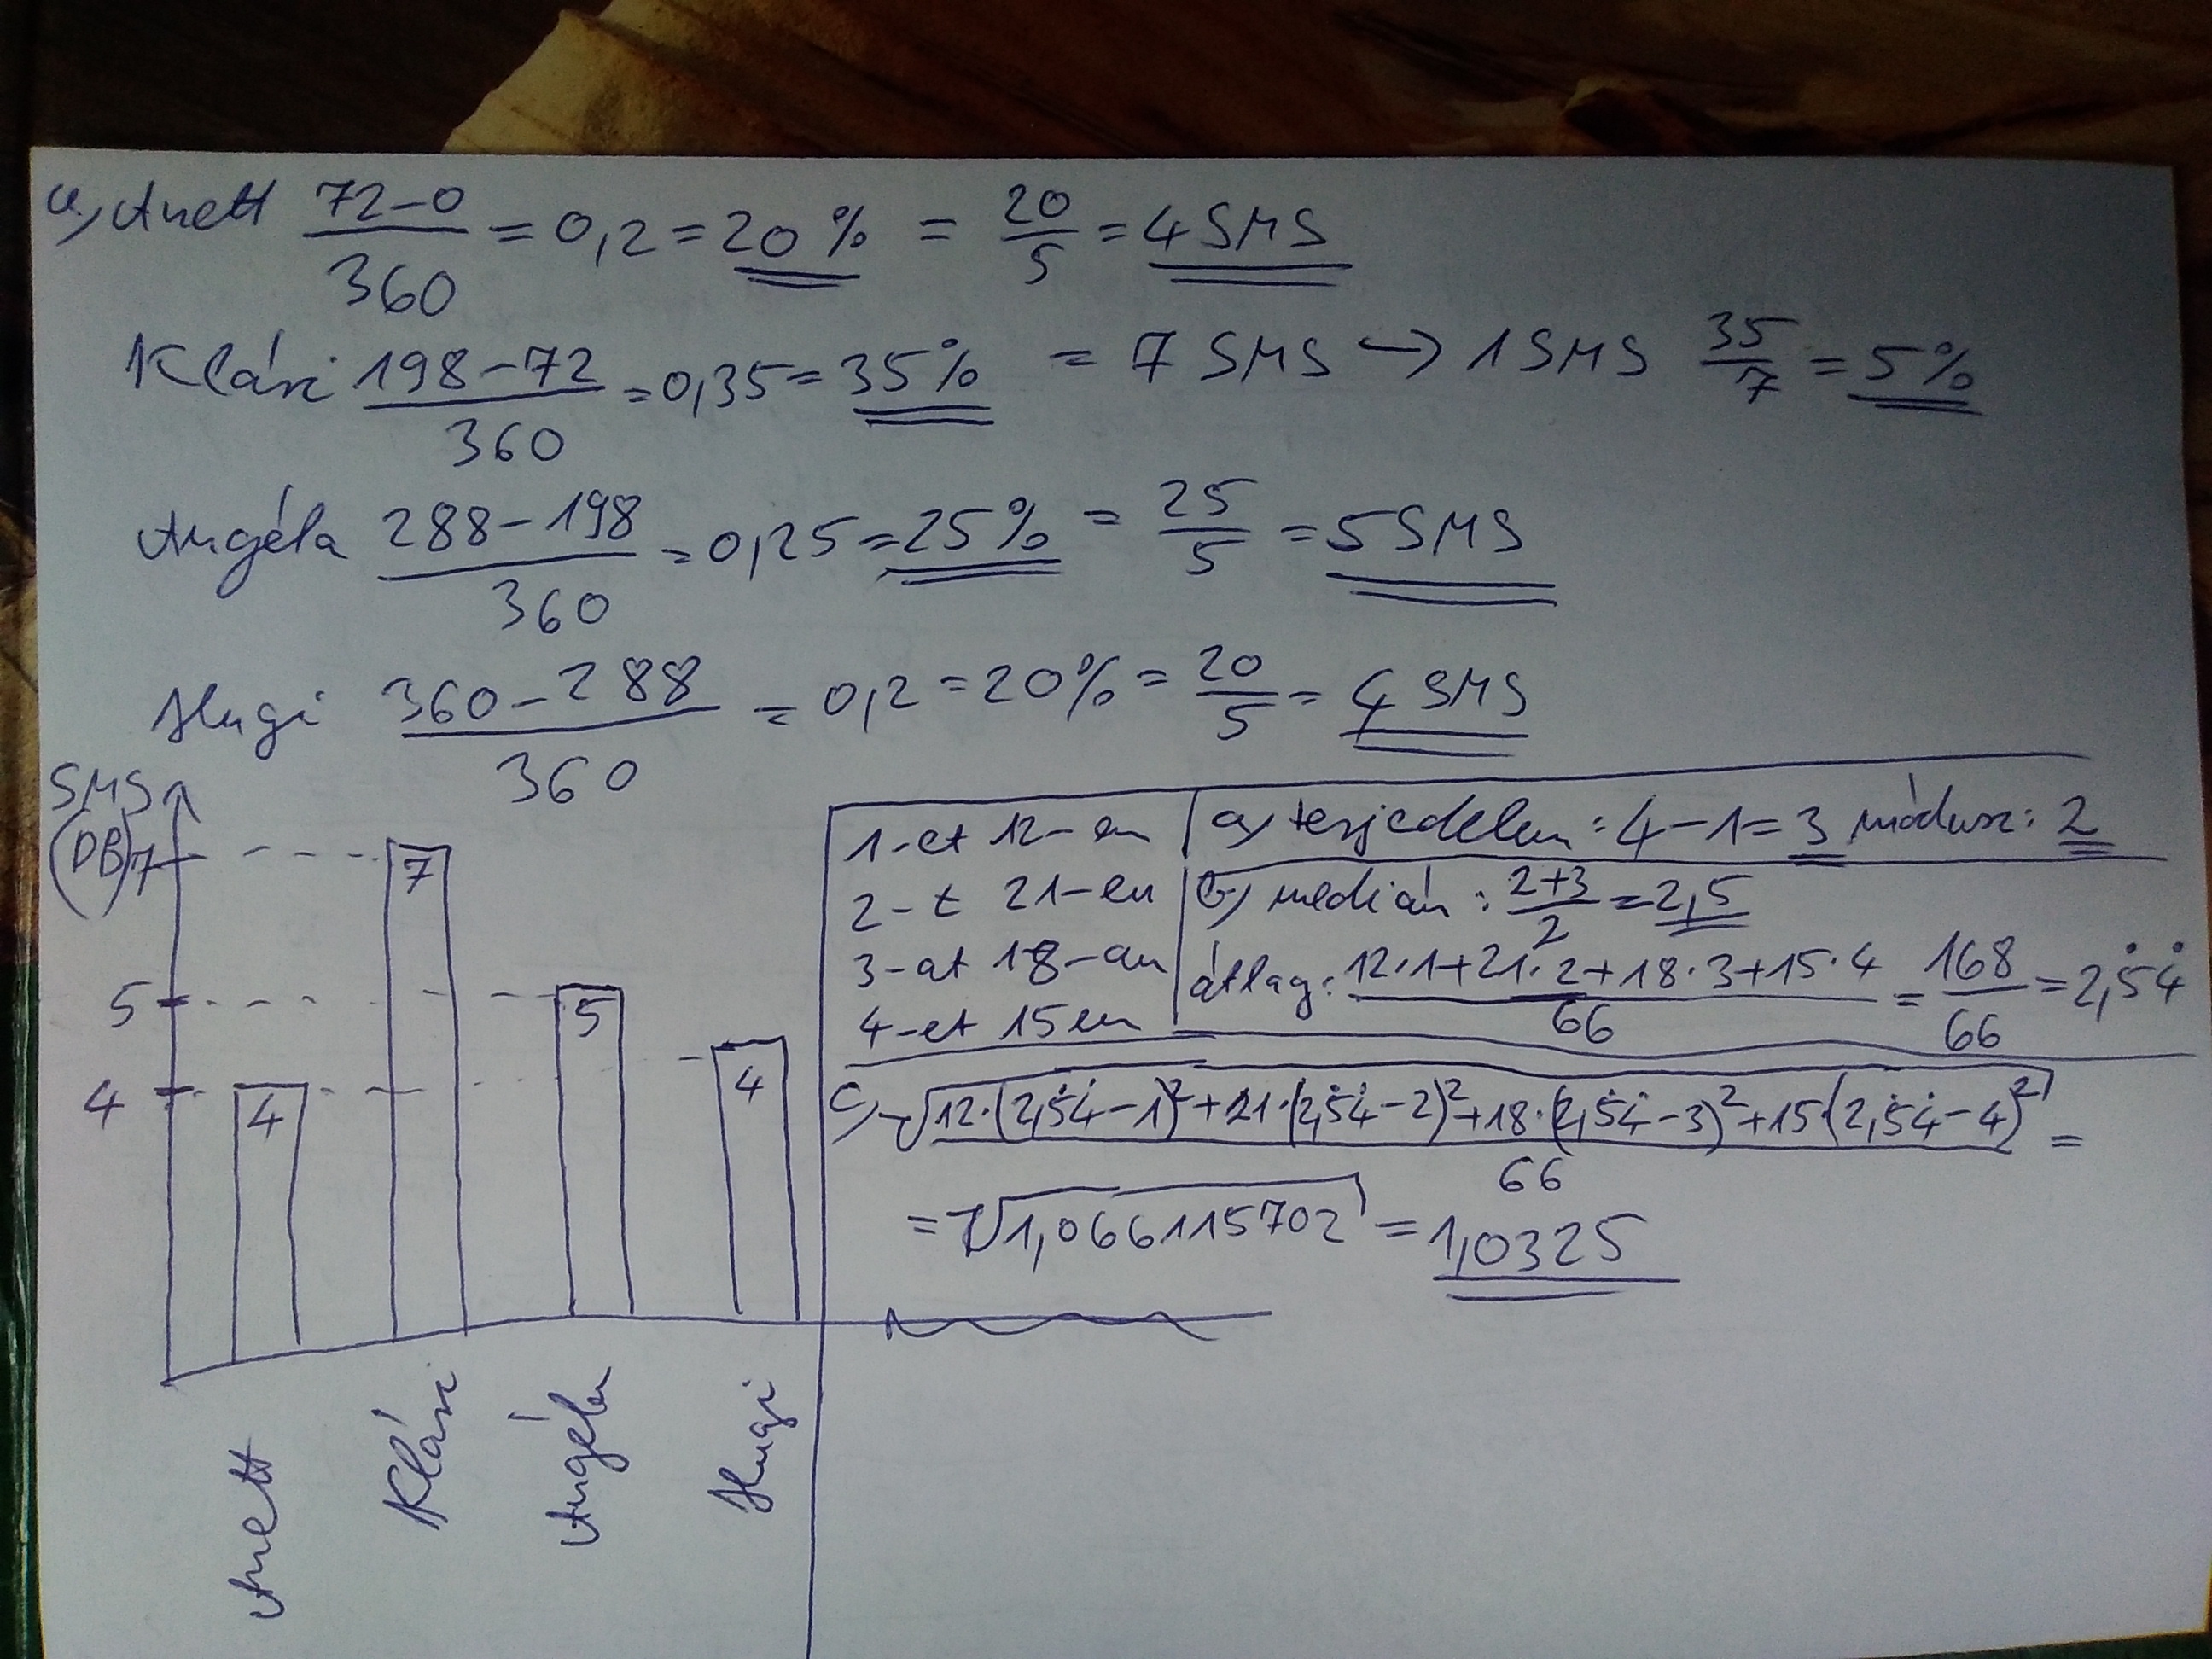 a) Anett (72-0)/360 = 0,2 = 20% = 20/5 = 4 SMS
Klári (198-72)/360 = 0,35 = 35% = 7 SMS → 1 SMS 35/7 = 5%
Angéla (288-198)/360 = 0,25 = 25% = 25/5 = 5 SMS
Hugi (360-288)/360 = 0,2 = 20% = 20/5 = 4 SMS
SMS
(DB)
7
5
4
4
7
5
4
Anett
Klári
Angéla
Hugi
1-et 12-en
2-t 21-en
3-at 18-an
4-et 15en
a) terjedelem: 4-1=3 módusz: 2
b) medián: (2+3)/2 = 2,5
átlag: (12·1+21·2+18·3+15·4)/66 = 168/66 = 2,5̇4̇
c) √((12·(2,5̇4̇-1)²+21·(2,5̇4̇-2)²+18·(2,5̇4̇-3)²+15·(2,5̇4̇-4)²)/66) =
= √1,0661115702 = 1,0325